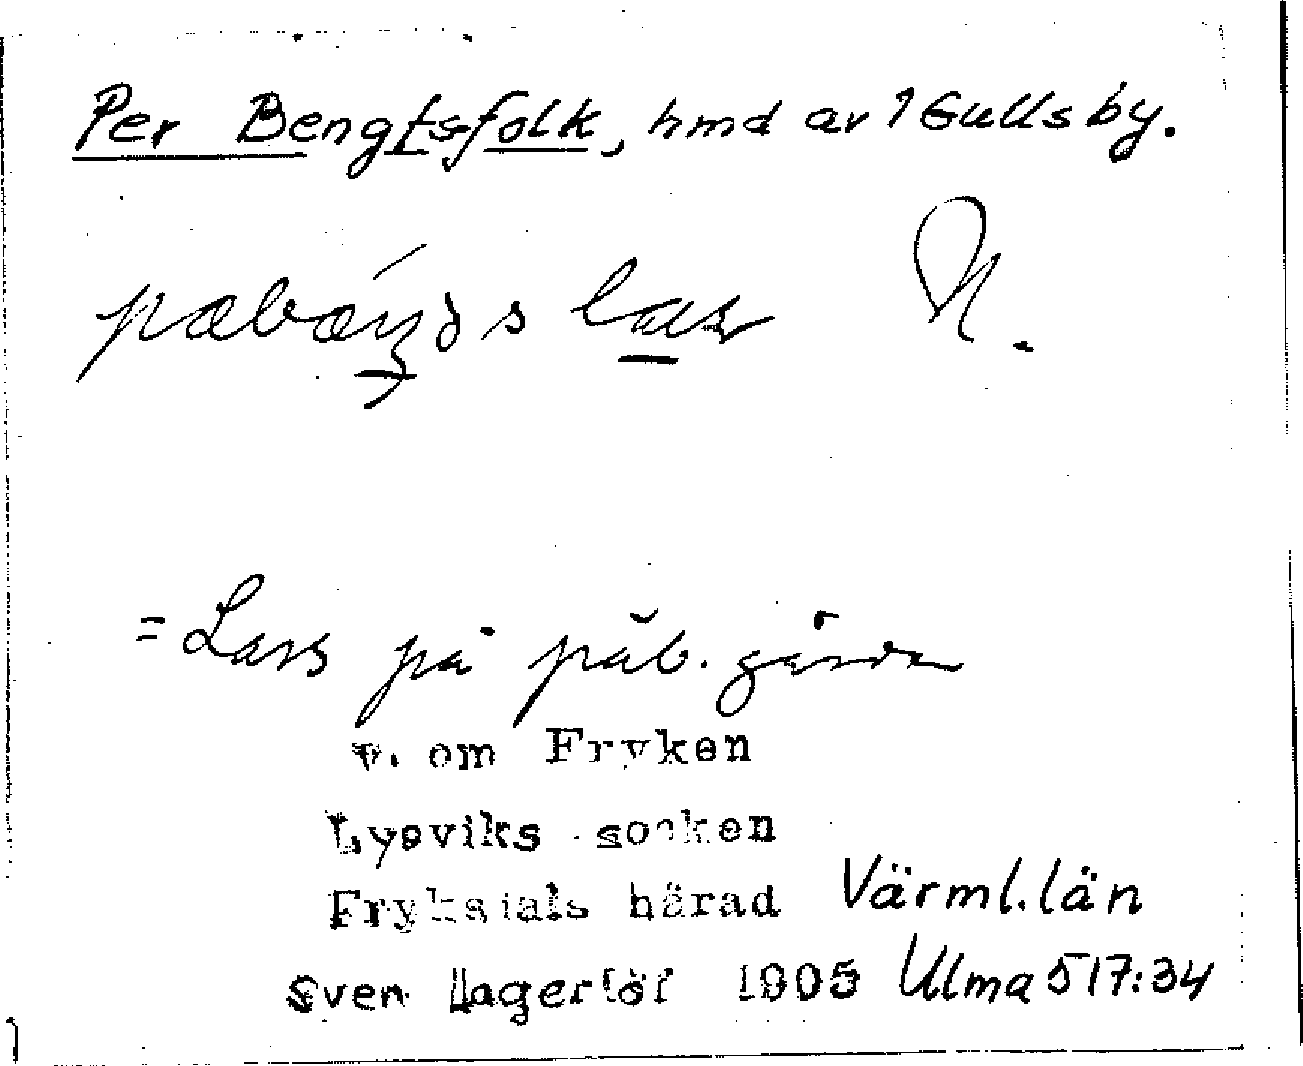 Per Bengtsfolk, hmd av 1 Gullsby.
= Lars på påb. gården
v. om Fryken
Lysviks socken
Fryksdals härad Värml. län
Sven Lagerlöf 1905 Ulma 517:34